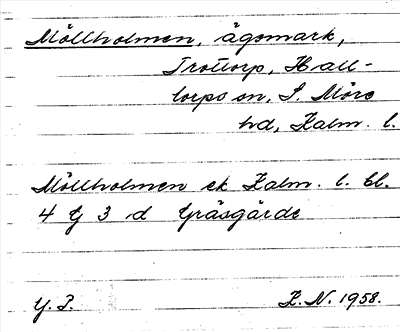 Möllholmen, ägomark,
Trottorp, Hall-
torps sn, S. Möre
hd, Kalm. l.
Möllholmen ek Kalm. l. bl.
4 G 3 d Gräsgärde
Y. P. K. N. 1958.